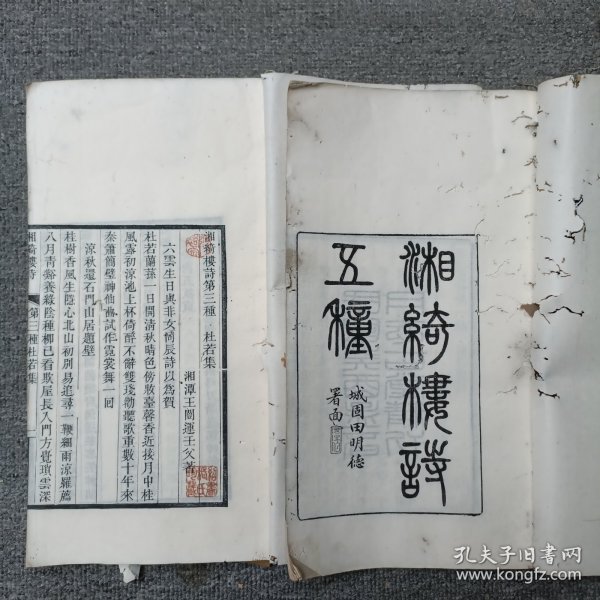 湘綺樓詩
五種
城固田明德
署面
湘綺樓詩第三種　杜若集
湘潭王闓運壬父著
六雲生日與非女同辰詩以為賀
杜若蘭葉一日開清秋晴色傍妝臺馨香近接月中桂
風露初涼池上杯倚醉不辭雙琖勸聽歌重數十年來
秦簫簡璧神仙曲試作霓裳舞一回
涼秋還石門山居題壁
桂樹香風生隱心北山初別易追尋一鞭細雨涼羅薦
八月青谿養綠陰種柳已看欺屋長入門方覺瑣雲深
湘綺樓詩　第三種杜若集　一
孔夫子旧书网
www.kongfz.com